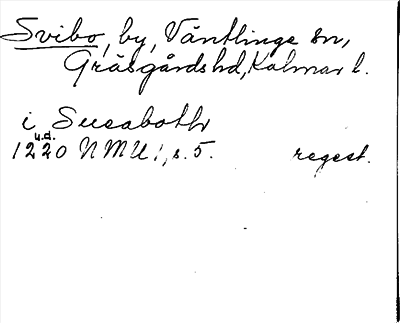 Svibo, by, Väntlinge sn,
Gräsgårds hd, Kalmar l.
i Sueabothr
u.d.
1220 NMU 1, s. 5. regest.